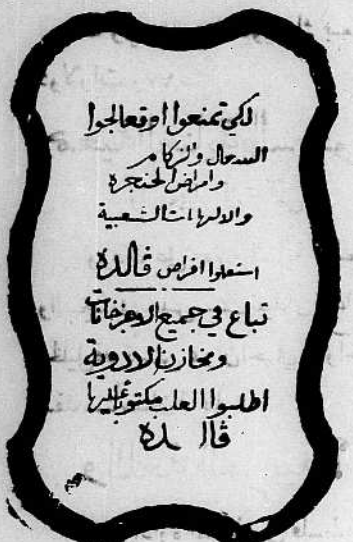 لكي تمنعوا اوتعالجوا
السعال والزكام
وامراض الحنجرة
والالتهابات الشعبية
استعملوا اقراص ڤالده
تباع في جميع الاجزخانات
ومخازن الادوية
اطلبوا العلب مكتوبا عليها
ڤالده